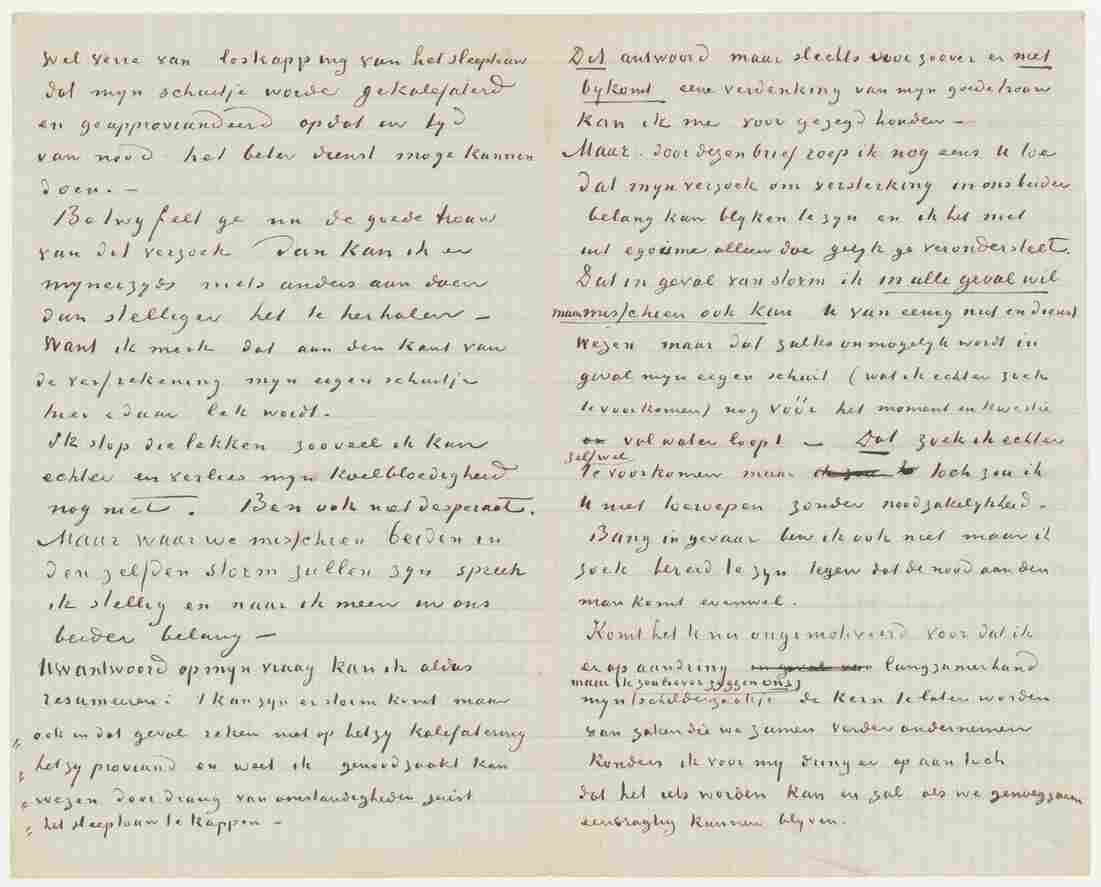 wel verre van loskapping van het sleeptouw
dat myn schuitje worde gekalefaterd
en geapproviandeerd opdat in tyd
van nood het beter dienst moge kunnen
doen. –
Betwyfelt ge nu de goede trouw
van dit verzoek Dan kan ik er
mynerzyds niets anders aan doen
dan stelliger het te herhalen –
Want ik merk dat aan den kant van
de verfrekening myn eigen schuitje
hier & daar lek wordt.
Ik stop die lekken zooveel ik kan
echter en verlies myn koelbloedigheid
nog niet. Ben ook niet desperaat.
Maar waar we misschien beiden in
den zelfden storm zullen zyn spreek
ik stellig en naar ik meen in ons
beider belang –
Uw antwoord op myn vraag kan ik aldus
resumeeren: 't kan zyn er storm komt maar
„ ook in dat geval reken niet op hetzy kalefatering
„ hetzy proviand en weet ik genoodzaakt kan
„ wezen door drang van omstandigheden juist
„ het sleeptouw te kappen –
Dit antwoord maar slechts voor zoover er niet
bykomt eene verdenking van myn goede trouw
kan ik me voor gezegd houden –
Maar door dezen brief roep ik nog eens u toe
dat myn verzoek om versterking in ons beider
belang kan blyken te zyn en ik het niet
uit egoisme alleen doe gelyk ge veronderstelt.
Dat in geval van storm ik in alle geval wil
maar misschien ook kan u van eenig nut en dienst
wezen maar dat zulks onmogelyk wordt in
geval myn eigen schuit (wat ik echter zoek
te voorkomen) nog vóór het moment en kwestie
vol water loopt – Dat zoek ik echter
zelf wel
te voorkomen maar toch zou ik
U niet toeroepen zonder noodzakelykheid.
Bang in gevaar ben ik ook niet maar ik
zoek bereid te zyn tegen dat de nood aan den
man komt evenwel.
Komt het U nu ongemotiveerd voor dat ik
er op aandring langzamerhand
maar ik zou liever zeggen ons)
myn (schilderzaakje de kern te laten worden
van zaken die we zamen verder ondernemen
Konders ik voor my dring er op aan toch
dat het iets worden kan en zal als we genoegzaam
eensragtig kunnen blyven.